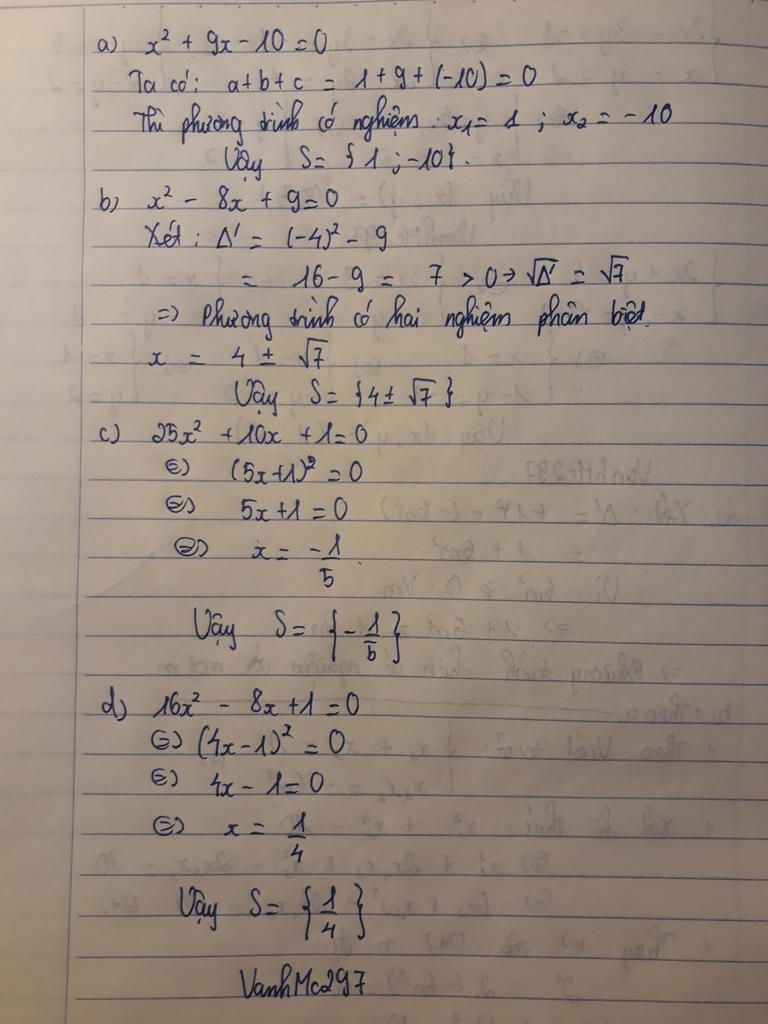 a) x² + 9x - 10 = 0
Ta có: a+b+c = 1+9+(-10) = 0
Thì phương trình có nghiệm: x₁ = 1 ; x₂ = -10
Vậy S = {1 ; -10}.
b) x² - 8x + 9 = 0
Xét: Δ' = (-4)² - 9
= 16 - 9 = 7 > 0 → √Δ' = √7
=> Phương trình có hai nghiệm phân biệt.
x = 4 ± √7
Vậy S = {4 ± √7}
c) 25x² + 10x + 1 = 0
⇔ (5x+1)² = 0
⇔ 5x+1 = 0
⇔ x = -1/5.
Vậy S = {-1/5}
d) 16x² - 8x + 1 = 0
⇔ (4x-1)² = 0
⇔ 4x - 1 = 0
⇔ x = 1/4
Vậy S = {1/4}
VanhMc297